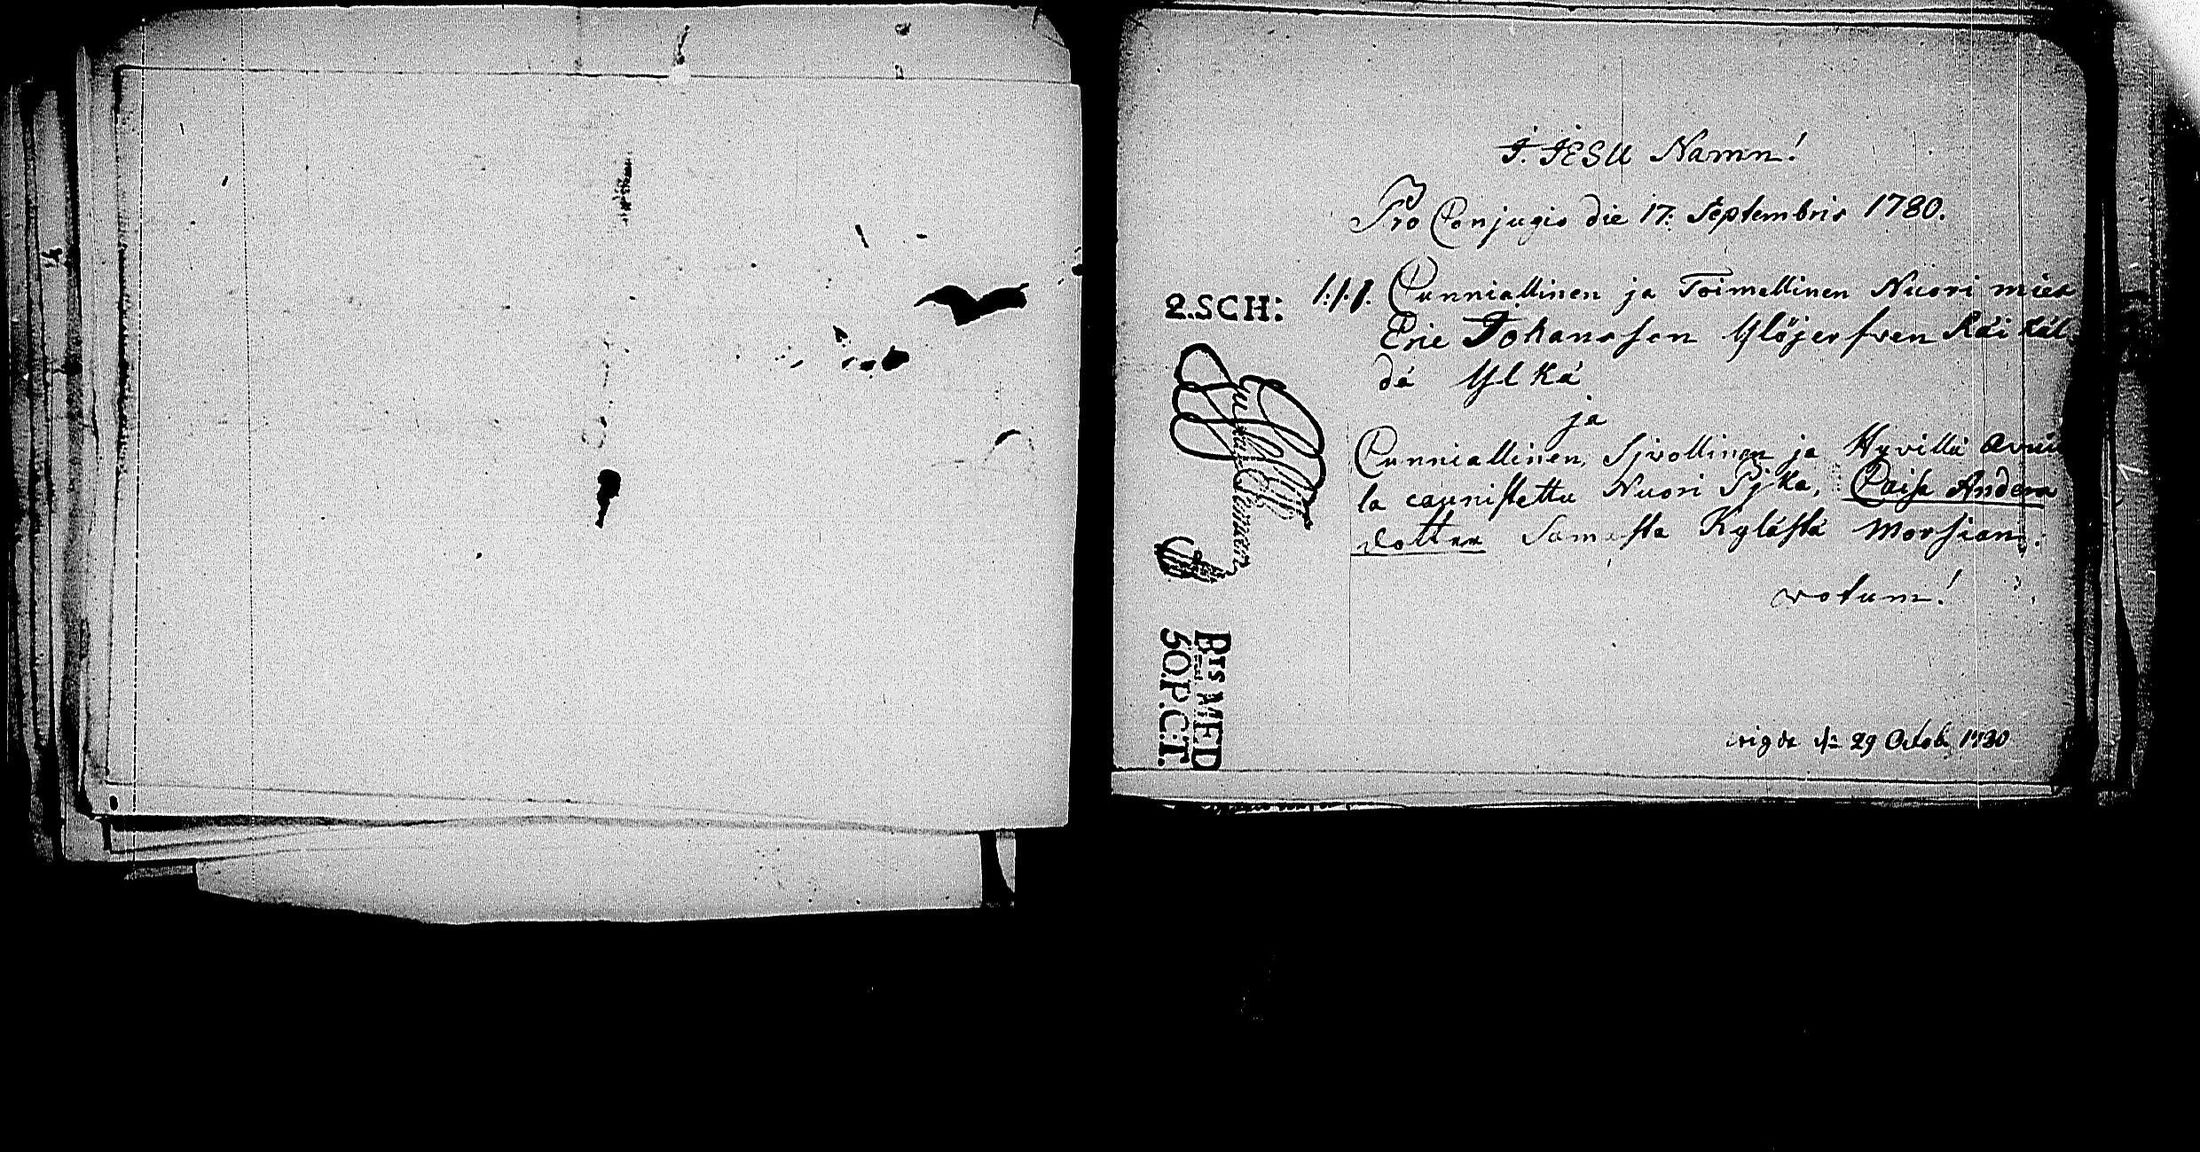 I. JESU Namn!
Pro Conjugio die 17: Septembris 1780.
2.SCH:
1:1:1. Cunniallinen ja Toimellinen Nuori mies
Eric Johansson Ylöjerfven Räikäl
dä Ylkä
ja
Cunniallinen, Sivollinen ja Hyvillä avui
la caunistettu Nuori Pijka, Caisa Anders
dotter Samasta Kylästä Morsian.
votum!
BTS MED
50.P.C:T.
vigde d: 29 Octob 1780